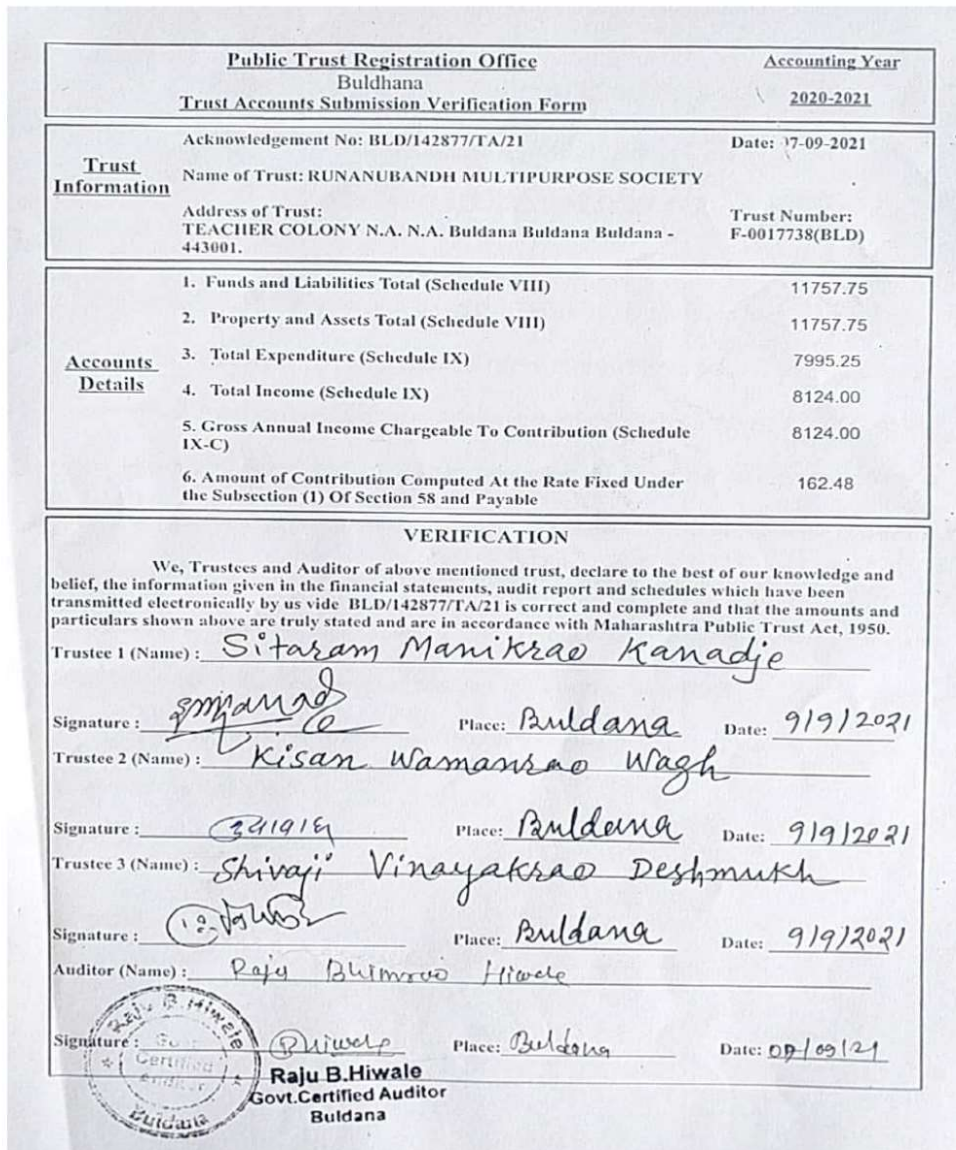 Public Trust Registration Office
Buldhana
Trust Accounts Submission Verification Form
Accounting Year
2020-2021
Trust Information
Acknowledgement No: BLD/142877/TA/21
Date: 07-09-2021
Name of Trust: RUNANUBANDH MULTIPURPOSE SOCIETY
Address of Trust:
TEACHER COLONY N.A. N.A. Buldana Buldana Buldana -
443001.
Trust Number:
F-0017738(BLD)
Accounts Details
1. Funds and Liabilities Total (Schedule VIII) 11757.75
2. Property and Assets Total (Schedule VIII) 11757.75
3. Total Expenditure (Schedule IX) 7995.25
4. Total Income (Schedule IX) 8124.00
5. Gross Annual Income Chargeable To Contribution (Schedule
IX-C) 8124.00
6. Amount of Contribution Computed At the Rate Fixed Under
the Subsection (1) Of Section 58 and Payable 162.48
VERIFICATION
We, Trustees and Auditor of above mentioned trust, declare to the best of our knowledge and
belief, the information given in the financial statements, audit report and schedules which have been
transmitted electronically by us vide BLD/142877/TA/21 is correct and complete and that the amounts and
particulars shown above are truly stated and are in accordance with Maharashtra Public Trust Act, 1950.
Trustee 1 (Name) : Sitaram Manikrao Kanadje
Signature : Place: Buldana Date: 9/9/2021
Trustee 2 (Name) : Kisan Wamanrao Wagh
Signature : Place: Buldana Date: 9/9/2021
Trustee 3 (Name) : Shivaji Vinayakrao Deshmukh
Signature : Place: Buldana Date: 9/9/2021
Auditor (Name) : Raju Bhimrao Hiwale
Signature : Place: Buldana Date: 09/09/21
Raju B. Hiwale
Govt. Certified Auditor
Buldana
Raju B.Hiwale
Govt.Certified Auditor
Buldana